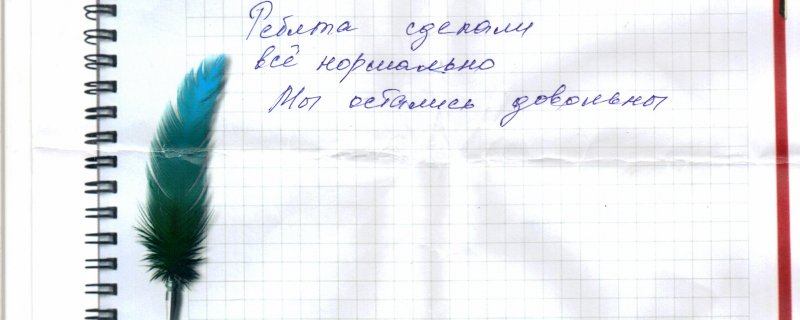 Ребята сделали
всё нормально
Мы остались довольны